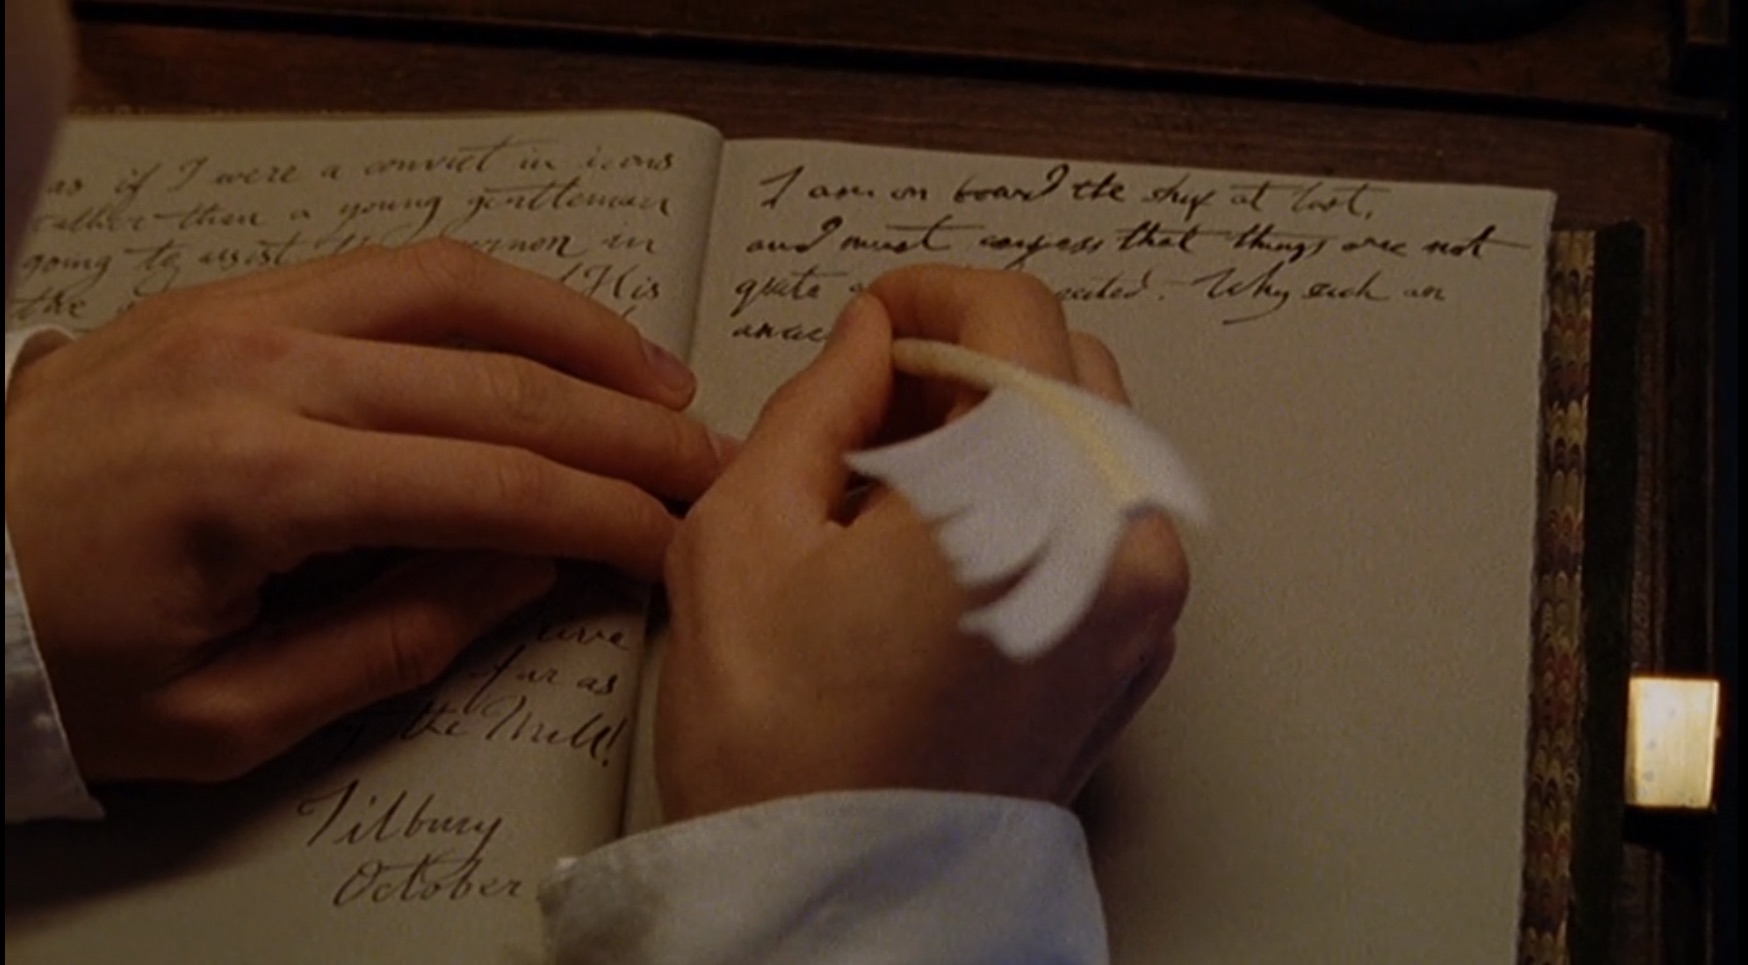 as if I were a convict in irons
rather then a young gentleman
going to assist in
the His
far as
the
Tilbury
October
I am on board the ship at last,
and must confess that things are not
quite Why such an